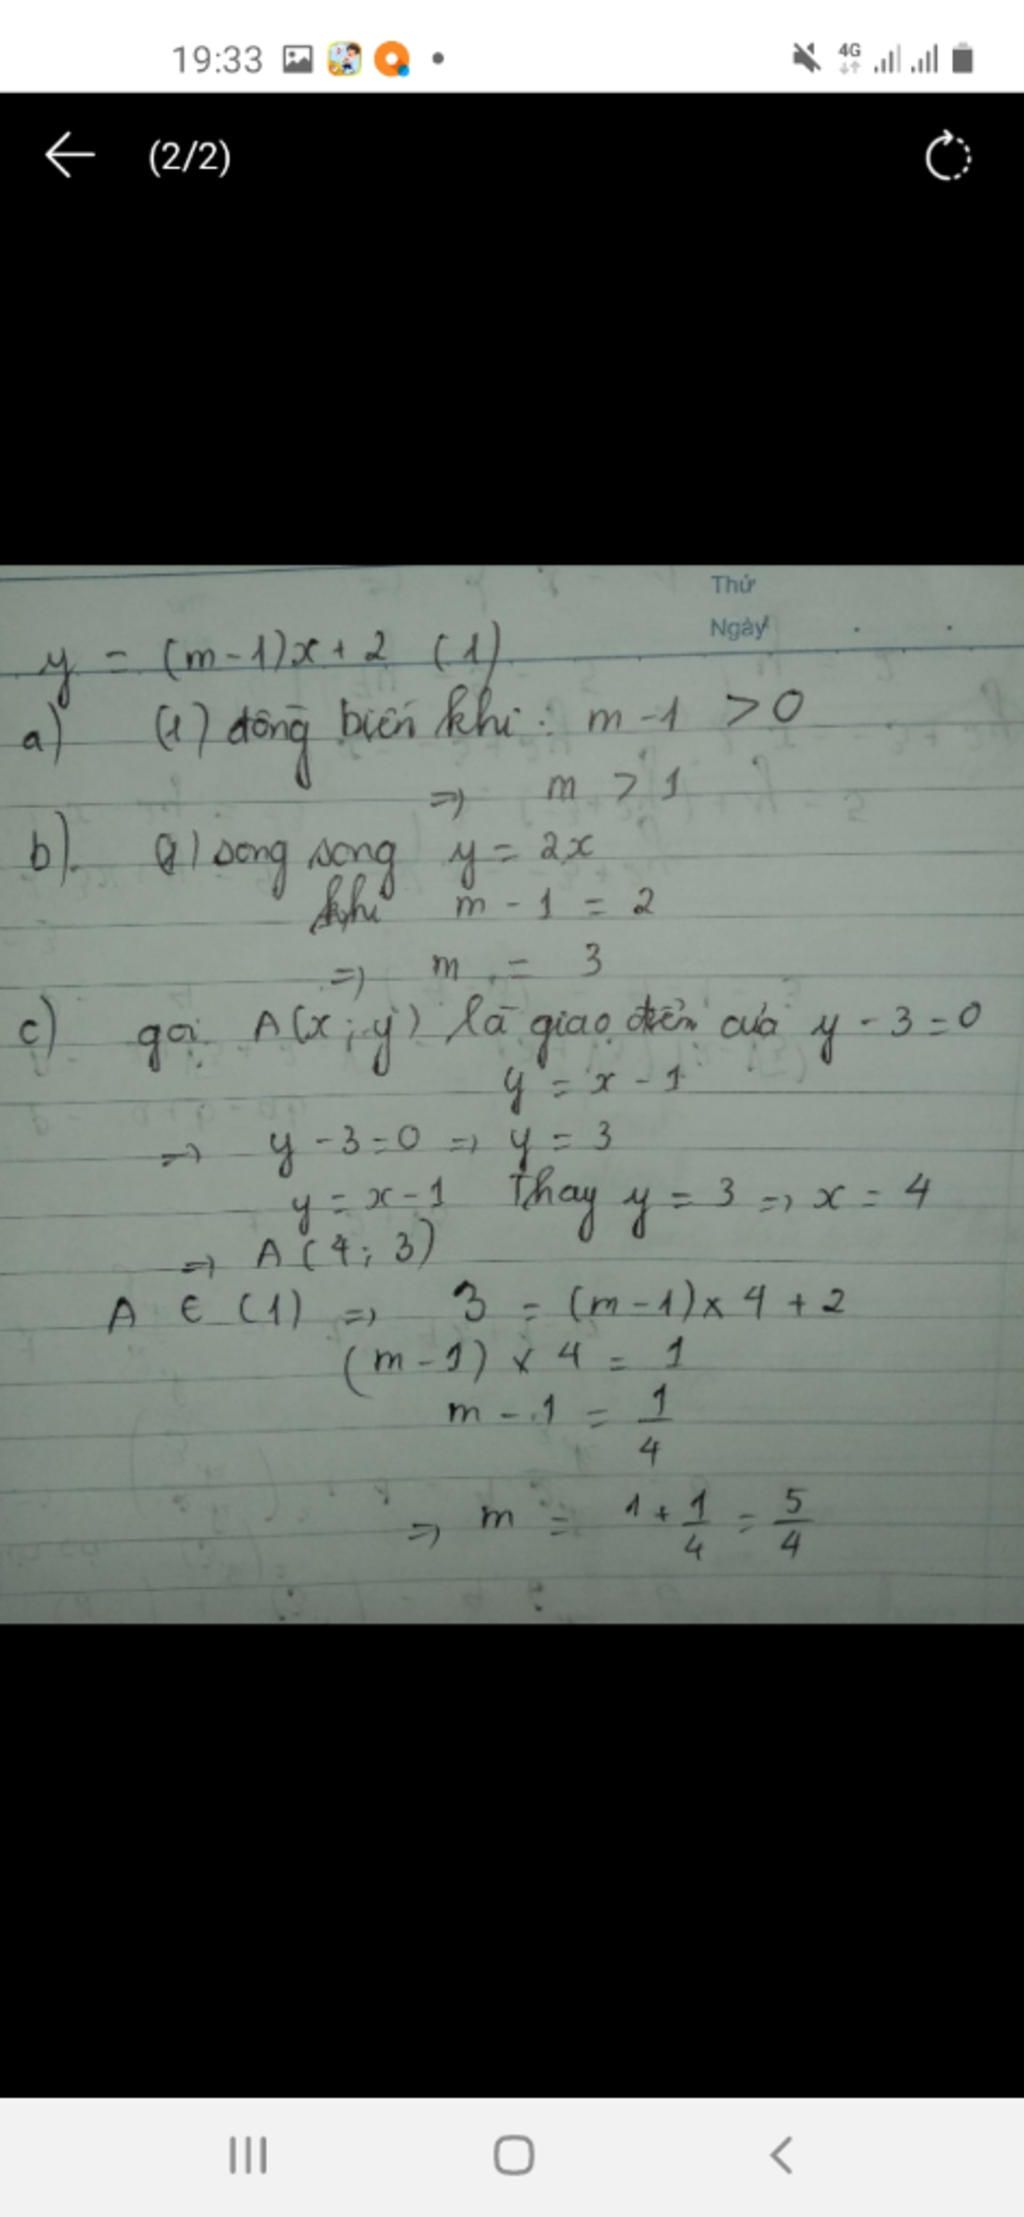 19:33
4G
(2/2)
Thứ
Ngày
y = (m-1)x + 2 (1)
a) (1) đồng biến khi : m - 1 > 0
=> m > 1
b). (1) song song y = 2x
khi m - 1 = 2
=> m = 3
c) gọi A(x; y) là giao điểm của y - 3 = 0
y = x - 1
=> y - 3 = 0 => y = 3
y = x - 1 Thay y = 3 => x = 4
=> A (4; 3)
A ∈ (1) => 3 = (m-1) x 4 + 2
(m - 1) x 4 = 1
m - 1 = 1/4
=> m = 1 + 1/4 = 5/4